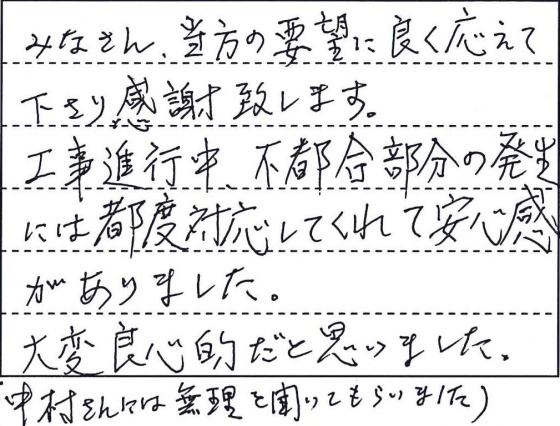 みなさん、当方の要望に良く応えて
下さり感謝致します。
工事進行中、不都合部分の発生
には都度対応してくれて安心感
がありました。
大変良心的だと思いました。
(中村さんには無理を聞いてもらいました)